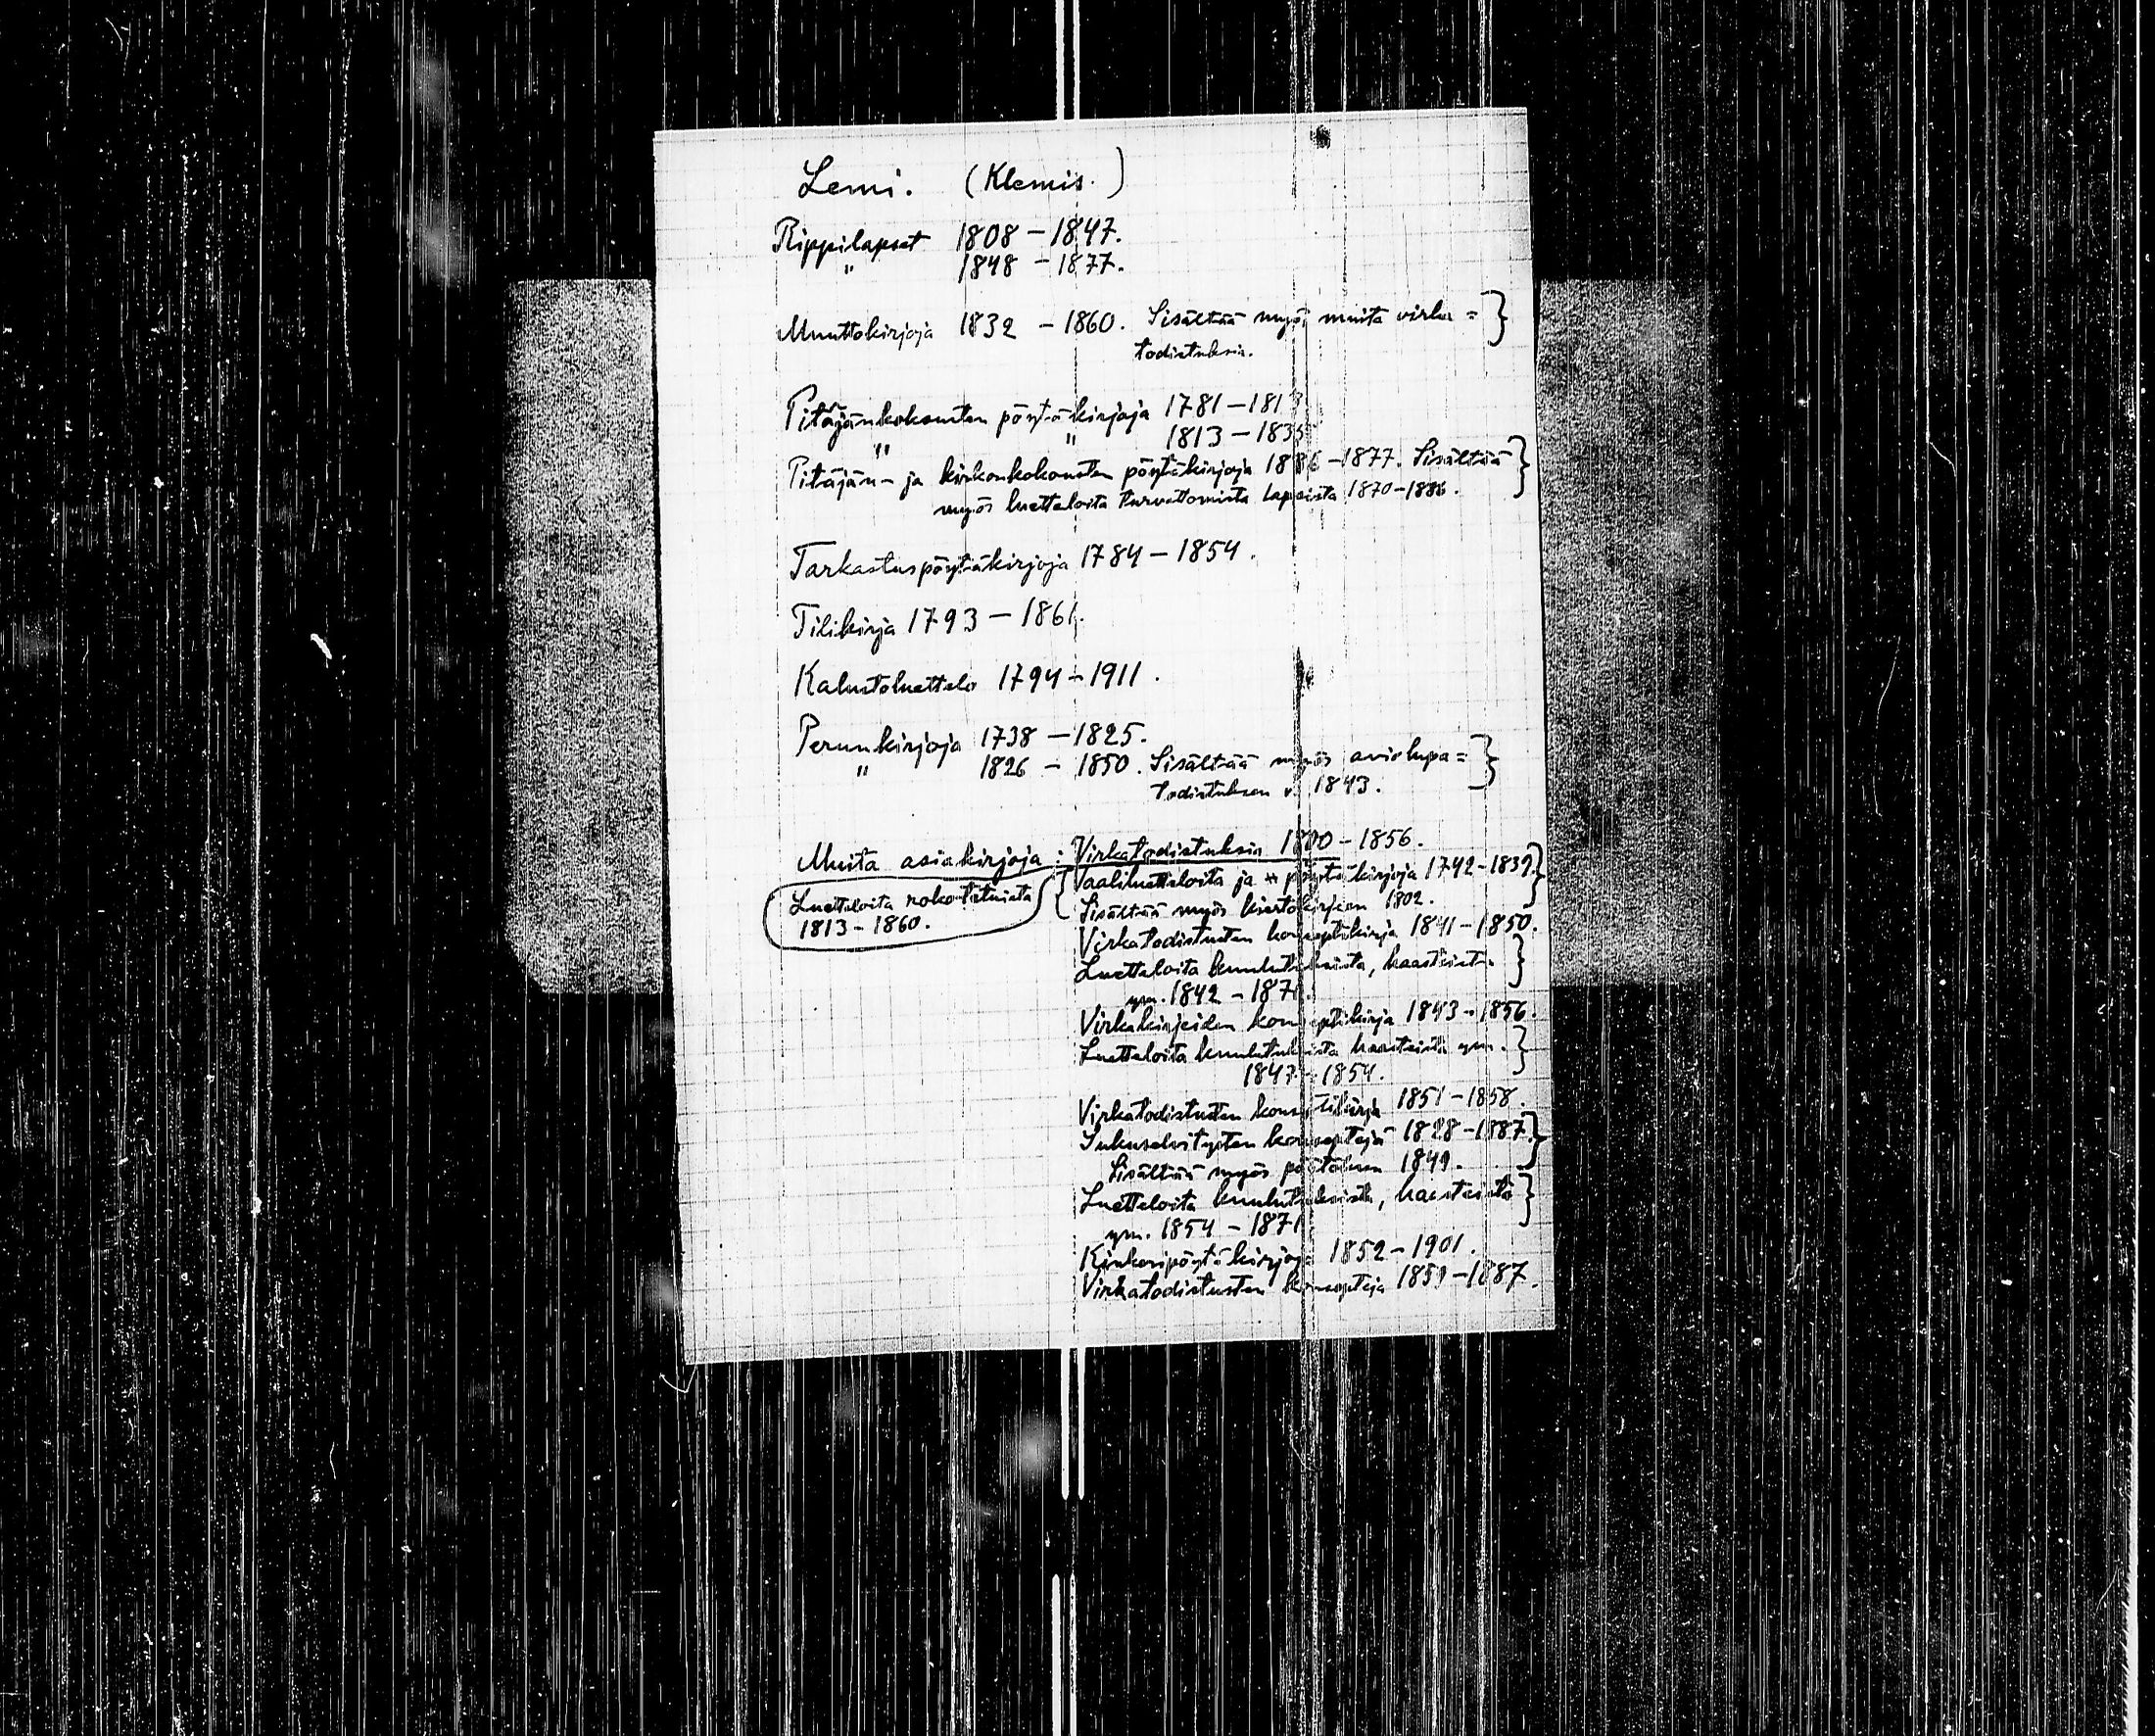 Lemi. (Klemis.)
Rippilapset 1808 - 1847.
" 1848 - 1877.
Muuttokirjoja 1832 - 1860. Sisältää myös muita virka =
todistuksia.
Pitäjänkokousten pöytäkirjoja 1781 - 1813
" " 1813 - 1835
Pitäjän- ja kirkonkokousten pöytäkirjoja - 1877. Sisältää
myös luetteloita turvattomista lapsista 1870 - 1886.
Tarkastuspöytäkirjoja 1784 - 1854.
Tilikirja 1793 - 1861.
Kalustoluettelo 1794 - 1911.
Perunkirjoja 1738 - 1825.
" 1826 - 1850. Sisältää myös aviolupa =
todistuksen v. 1843.
Muita asiakirjoja : Virkatodistuksia 1800 - 1856.
Luetteloita rokotetuista
1813 - 1860.
Vaaliluetteloita ja pöytäkirjoja 1742 - 1839.
Sisältää myös kiertokirjeen 1802.
Virkatodistusten konseptikirja 1841 - 1850.
Luetteloita kuulutuksista, haasteista
ym. 1842 - 1871.
Virkakirjeiden konseptikirja 1843 - 1856.
Luetteloita kuulutuksista haasteista ym.
1847 - 1854.
Virkatodistusten konseptikirja 1851 - 1858.
Sukuselvitysten konsepteja 1828 - 1887.
Sisältää myös päätöksen 1849.
Luetteloita kuulutuksista, haasteista
ym. 1854 - 1871.
Kinkeripöytäkirjoja 1852 - 1901.
Virkatodistusten konsepteja 1859 - 1887.